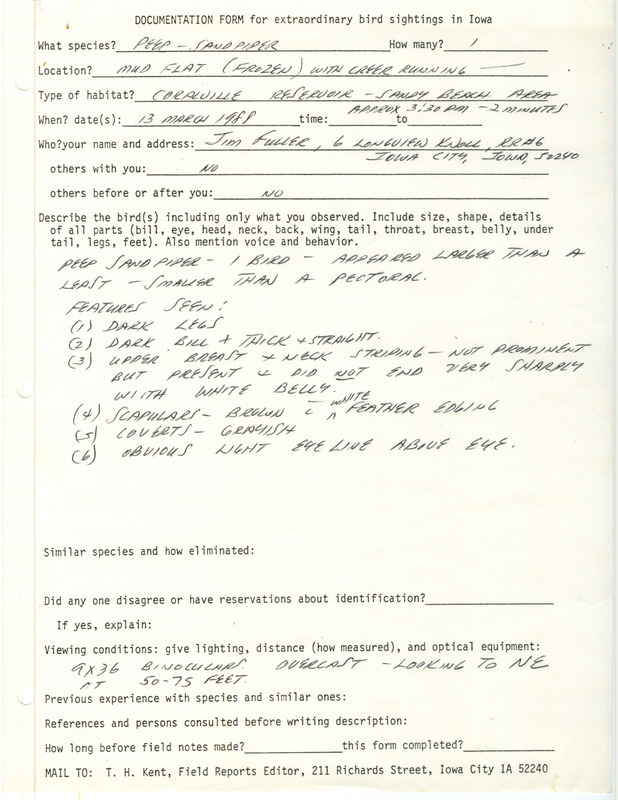 DOCUMENTATION FORM for extraordinary bird sightings in Iowa
What species? PEEP - SANDPIPER How many? 1
Location? MUD FLAT (FROZEN) WITH CREEK RUNNING
Type of habitat? CORALVILLE RESERVOIR - SANDY BEACH AREA
APPROX 3:30 PM - 2 MINUTES
When? date(s): 13 MARCH 1988 time: to
Who?your name and address: JIM FULLER, 6 LONGVIEW KNOLL, RR#6
IOWA CITY, IOWA, 50240
others with you: NO
others before or after you: NO
Describe the bird(s) including only what you observed. Include size, shape, details
of all parts (bill, eye, head, neck, back, wing, tail, throat, breast, belly, under
tail, legs, feet). Also mention voice and behavior.
PEEP SANDPIPER - 1 BIRD - APPEARED LARGER THAN A
LEAST - SMALLER THAN A PECTORAL.
FEATURES SEEN:
(1) DARK LEGS
(2) DARK BILL + THICK + STRAIGHT.
(3) UPPER BREAST + NECK STRIPING - NOT PROMINENT
BUT PRESENT + DID NOT END VERY SHARPLY
WITH WHITE BELLY.
(4) SCAPULARS - BROWN c̄ WHITE FEATHER EDGING
(5) COVERTS - GRAYISH
(6) OBVIOUS LIGHT EYE LINE ABOVE EYE.
Similar species and how eliminated:
Did any one disagree or have reservations about identification?
If yes, explain:
Viewing conditions: give lighting, distance (how measured), and optical equipment:
9X36 BINOCULARS. OVERCAST - LOOKING TO NE
AT 50-75 FEET.
Previous experience with species and similar ones:
References and persons consulted before writing description:
How long before field notes made? this form completed?
MAIL TO: T. H. Kent, Field Reports Editor, 211 Richards Street, Iowa City IA 52240